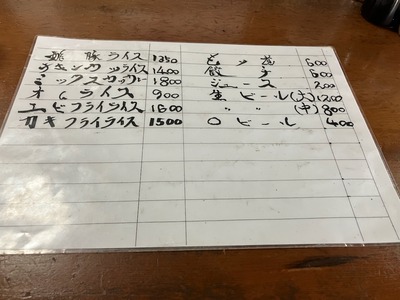 酢豚ライス 1350
チキンカツライス 1400
ミックスフライ 1800
オムライス 900
エビフライライス 1600
カキフライライス 1500
600
餃子 600
ジュース 200
生ビール(大) 1200
〃 〃 (中) 800
〇ビール 400